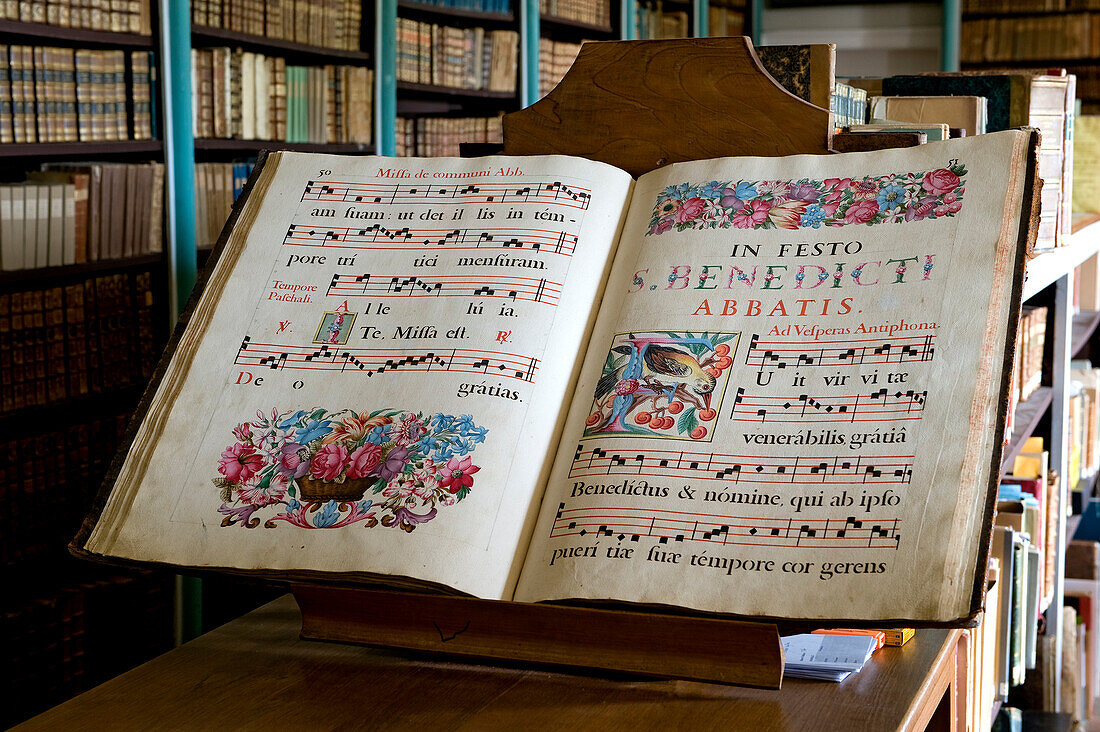 50
Missa de communi Abb.
am suam: ut det il lis in tém-
pore trí tici mensúram.
Tempore
Paschali.
Alle lú ia.
℣ Ite, Missa est. ℟
De o grátias.
51
IN FESTO
S. BENEDICTI
ABBATIS.
Ad Vesperas Antiphona.
FUit vir vi tæ
venerábilis, grátiâ
Benedíctus & nómine, qui ab ipso
puerí tiæ suæ témpore cor gerens